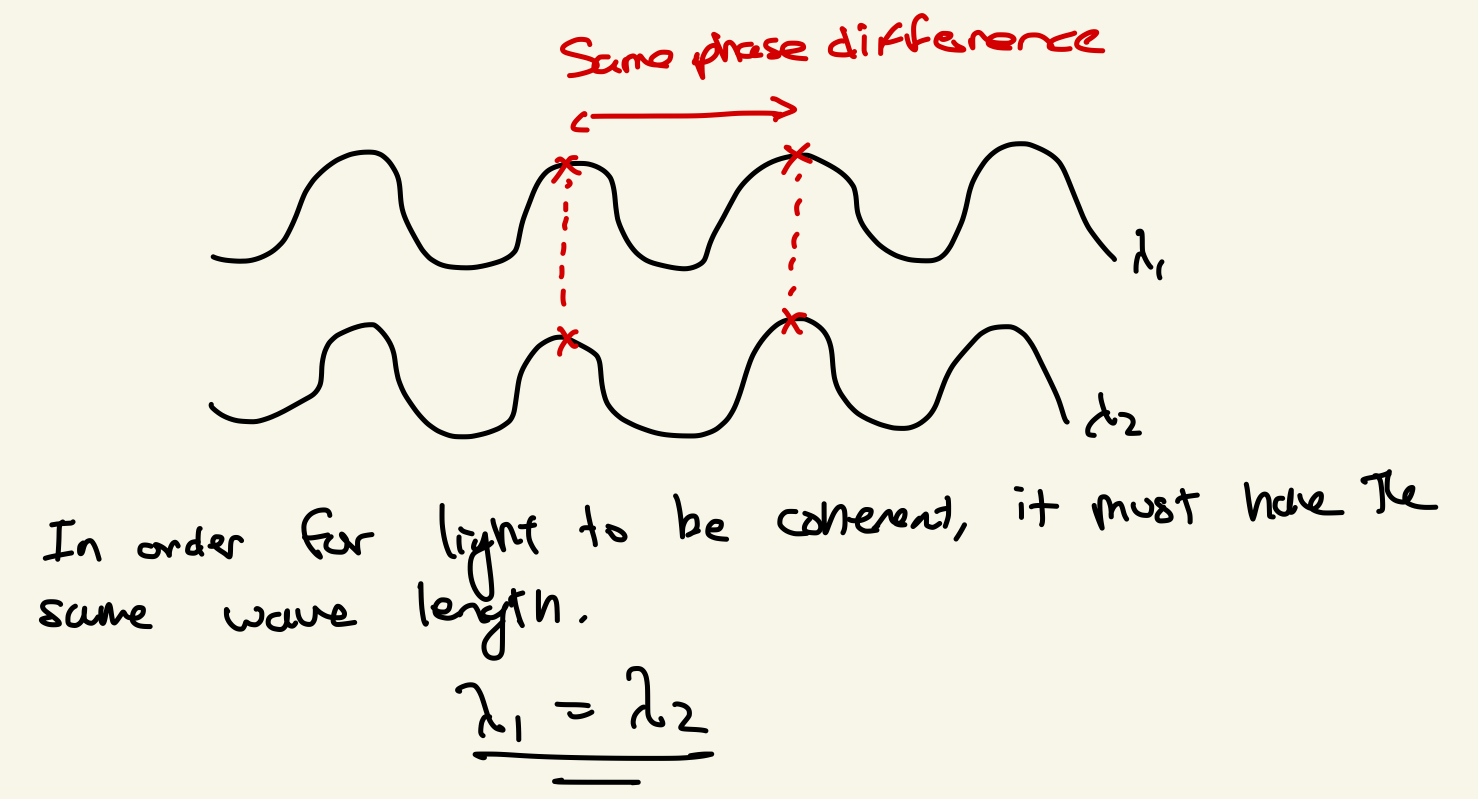 Same phase difference
λ₁
λ₂
In order for light to be coherent, it must have the
same wave length.
λ₁ = λ₂